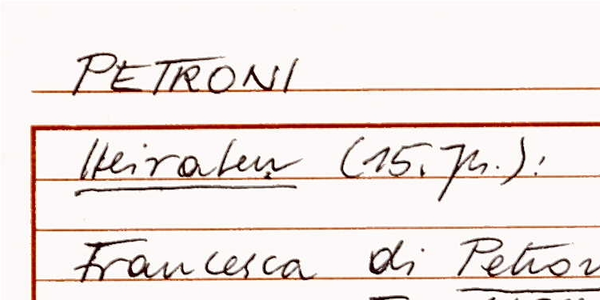 PETRONI
Heiraten (15. Jh.):
Francesca di Petron